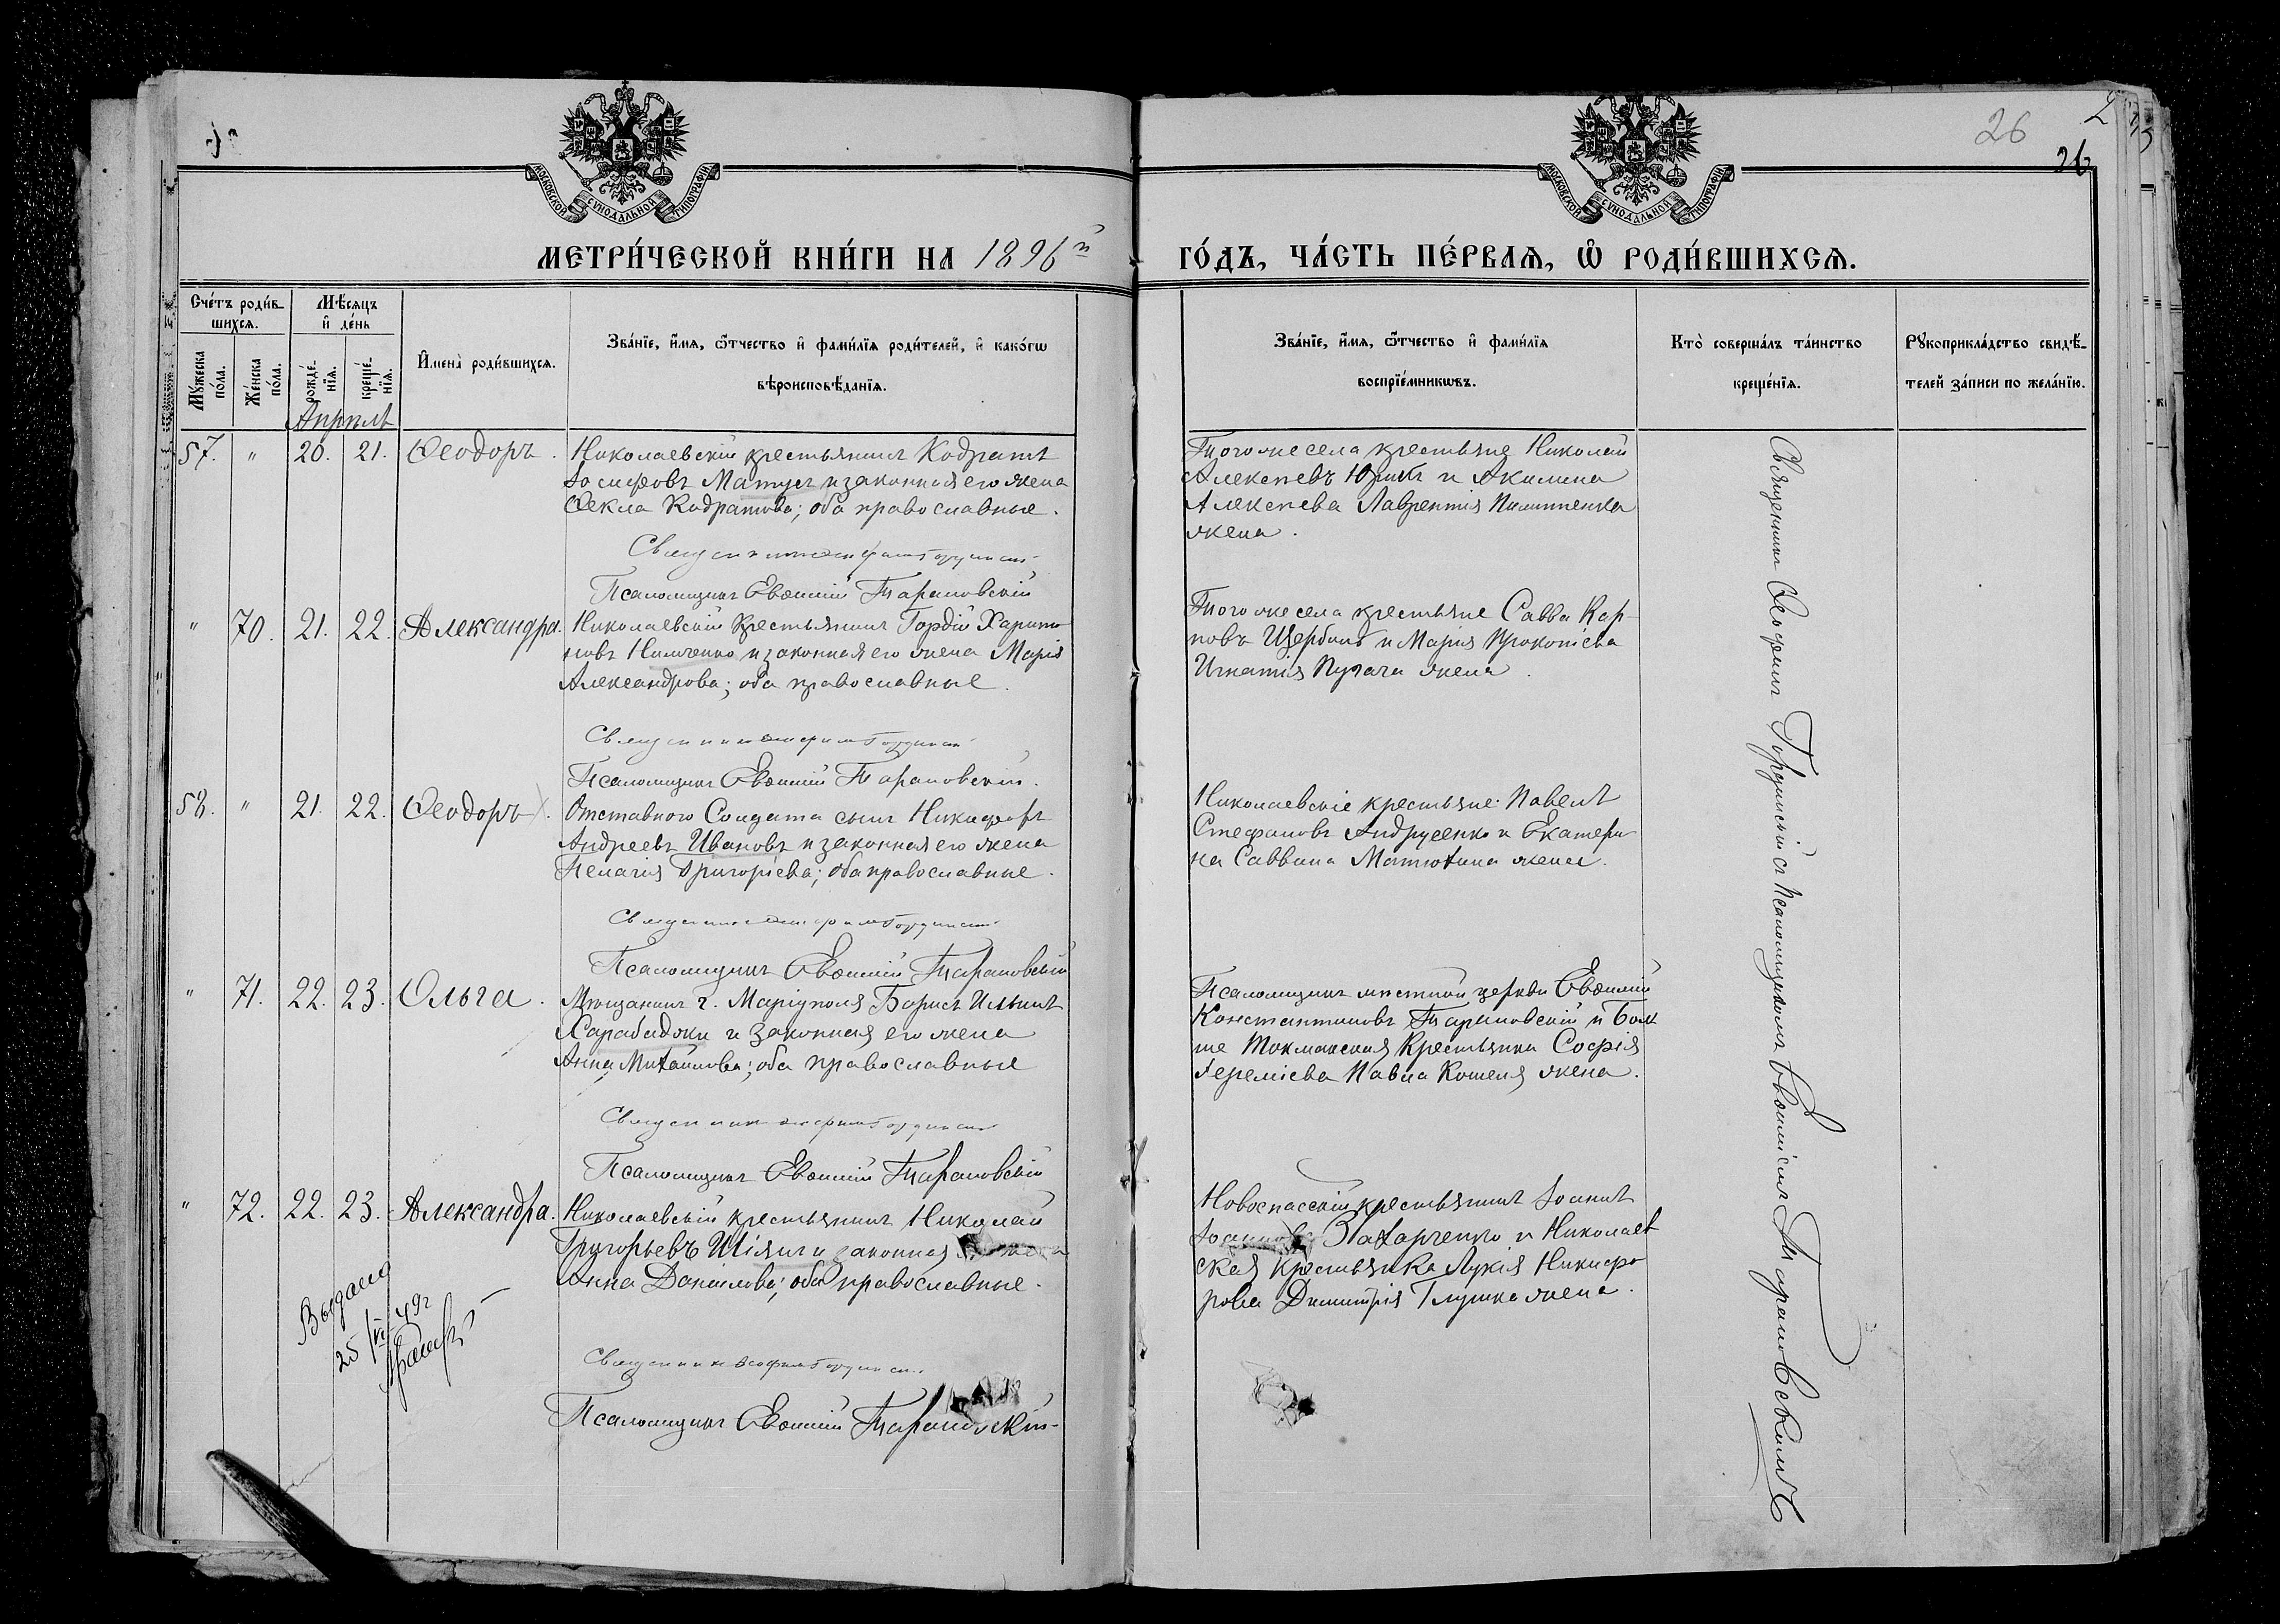 МОСКОВСКОЙ СУНОДАЛЬНОЙ ТИПОГРАФІИ
МОСКОВСКОЙ СУНОДАЛЬНОЙ ТИПОГРАФІИ
26
26
МЕТРИ́ЧЕСКОЙ КНИ́ГИ НА 1896й
ГО́ДЪ, ЧА́СТЬ ПЕ́РВАѦ, Ѡ РОДИ́ВШИХСѦ.
Сче́тъ роди́в-
шихсѧ.
Мꙋжеска по́ла.
Же́нска по́ла.
Мѣ́сѧцъ
и҆ де́нь
рожде́-
нїѧ.
креще́-
нїѧ.
И҆мена̀ роди́вшихсѧ.
Зва́нїе, и҆́мѧ, ѻ҆́тчество и҆ фами́лїѧ роди́телей, и҆ како́гѡ
вѣроисповѣ́данїѧ.
Зва́нїе, и҆́мѧ, ѻ҆́тчество и҆ фами́лїѧ
воспрїе́мникѡвъ.
Кто̀ соверша́лъ та́инство
креще́нїѧ.
Рꙋкоприкла́дство свидѣ́-
телей за́писи по жела́нїю.
Апрѣль
57. " 20. 21. Ѳеодоръ.
Николаевскій крестьянинъ Кодратъ
Іосифовъ Матусъ и законная его жена
Ѳекла Кодратова; оба православные.
Псаломщикъ Евѳимій Тарановскій
Того же села крестьяне Николай
Алексѣевъ и Акилина
Алексѣева Лаврентія
жена.
" 70. 21. 22. Александра.
Николаевскій крестьянинъ Гордій Харито-
новъ и законная его жена Марія
Александрова; оба православные.
Псаломщикъ Евѳимій Тарановскій.
Того же села крестьяне Савва Кар-
повъ Щербина и Марія Прокопіева
Игнатія Пугача жена.
58. " 21. 22. Ѳеодоръ.
Отставного Солдата сынъ Никифоръ
Андреевъ Ивановъ и законная его жена
Пелагія Григоріева; оба православные.
Псаломщикъ Евѳимій Тарановскій
Николаевскіе крестьяне: Павелъ
Стефановъ Андрусенко и Екатери-
на Саввина Матюхина жена.
" 71. 22. 23. Ольга.
Мѣщанинъ г. Маріуполя Борисъ Ильинъ
Харабаджи и законная его жена
Анна Михайлова; оба православные
Псаломщикъ Евѳимій Тарановскій
Псаломщикъ мѣстной церкви Евѳимій
Константиновъ Тарановскій и Боль-
ше Токмакская крестьянка Софія
Іереміева Павла Кошеля жена.
" 72. 22. 23. Александра.
Николаевскій крестьянинъ Николай
Григорьевъ Шіянъ и законная его жена
Анна Данилова; оба православные.
Псаломщикъ Евѳимій Тарановскій
Новоспасскій крестьянинъ Іоаннъ
Іоанновъ Захарченко и Николаев-
ская крестьянка Лукія Никифо-
рова Димитрія Глушка жена.
Выдано
25/VI 49г
Священникъ Ѳеофилъ Гордынскій съ Псаломщикомъ Евѳиміемъ Тарановскимъ